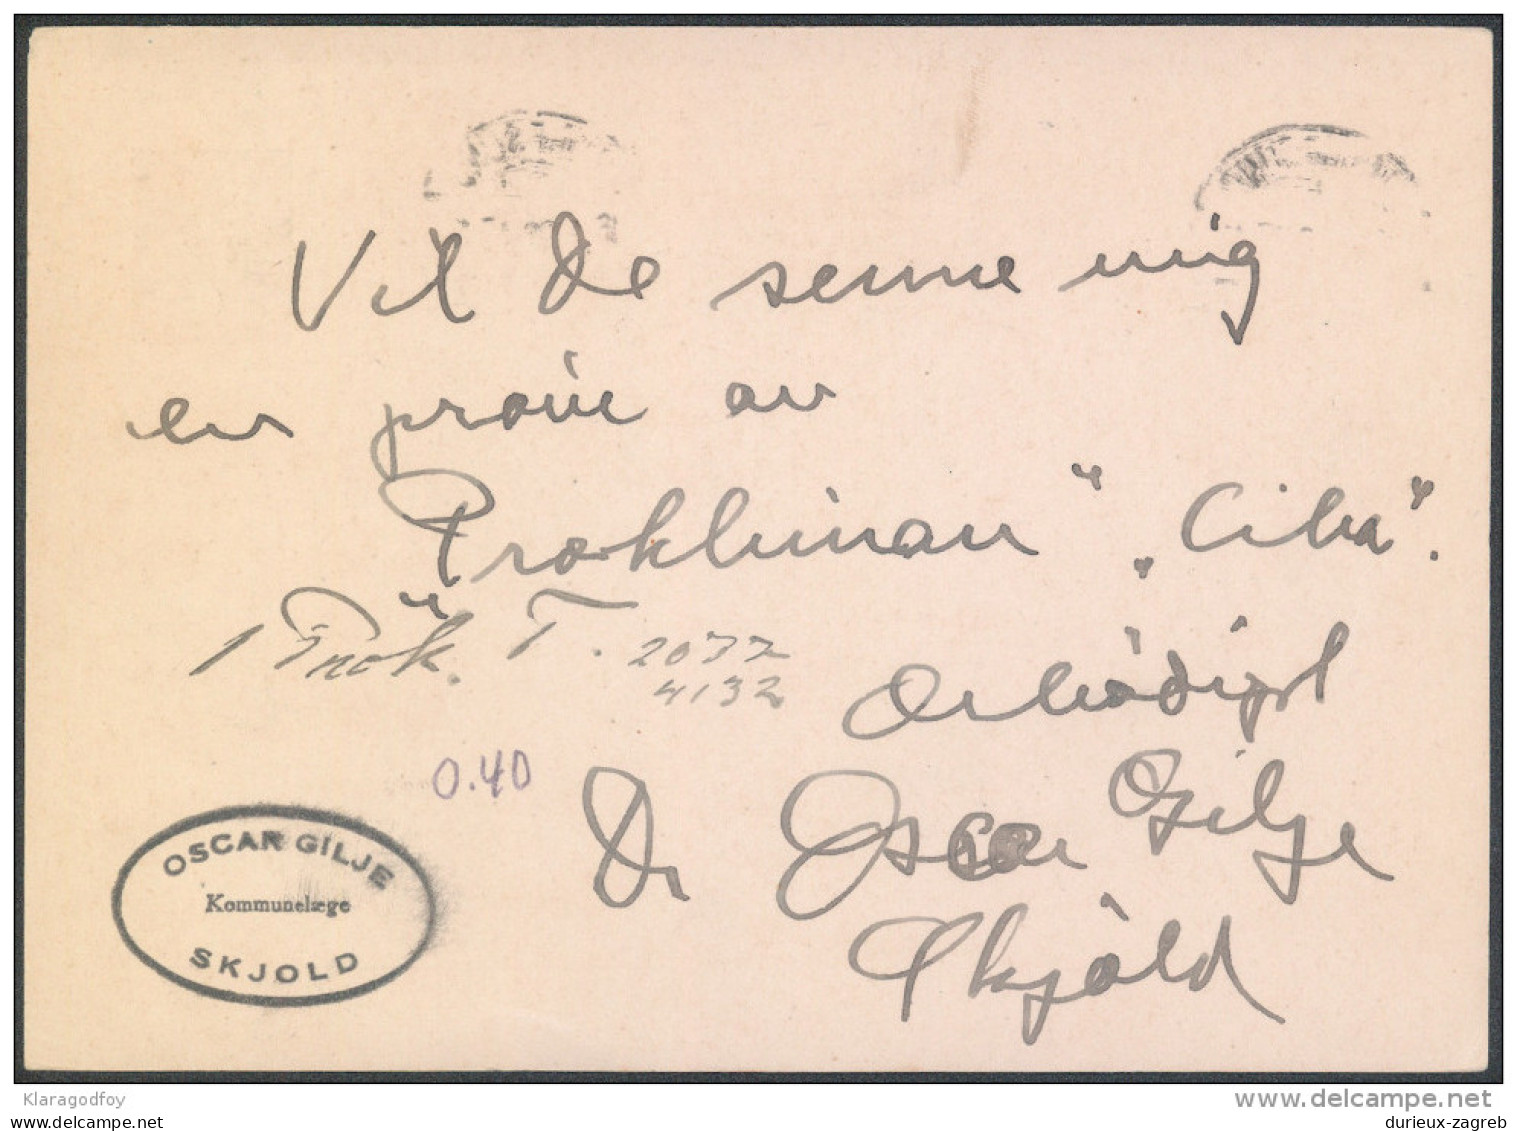 Vil De senne mig
en prøve av
"Prokliman" "Ciba".
1 Prok. T. 2077
4132
Ærbødigst
0.40
Dr Oscar Gilje
Skjold
OSCAR GILJE
Kommunelæge
SKJOLD
Klaragodfoy
delcampe.net
www.delcampe.net
durieux-zagreb